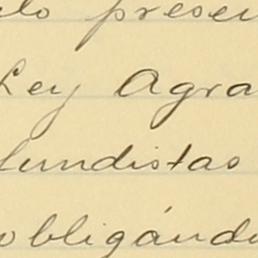 lo presen
Ley Agra
fundistas
obligándo